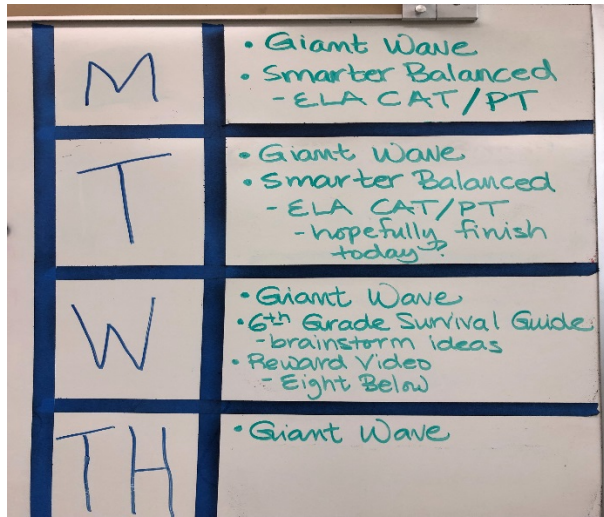 M
• Giant Wave
• Smarter Balanced
- ELA CAT/PT
T
• Giant Wave
• Smarter Balanced
- ELA CAT/PT
- hopefully finish
today?
W
• Giant Wave
• 6th Grade Survival Guide
- brainstorm ideas
• Reward Video
- Eight Below
TH
• Giant Wave